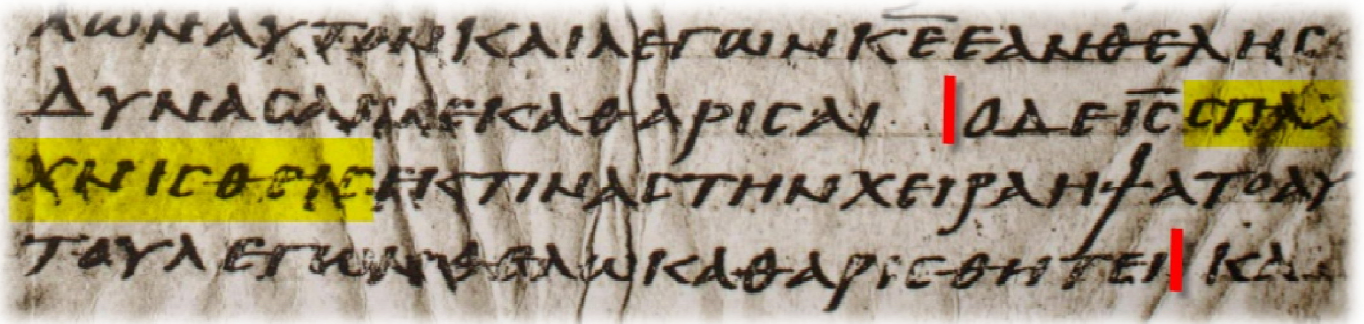 ΛΩΝΑΥΤΟΝΚΑΙΛΕΓΩΝΚ̅Ε̅ΕΑΝΘΕΛΗϹ
ΔΥΝΑϹΑΙΜΕΚΑΘΑΡΙϹΑΙ ΟΔΕΙ̅Ϲ̅ϹΠΛΑΓ
ΧΝΙϹΘΕΙϹΕΚΤΙΝΑϹΤΗΝΧΕΙΡΑΗΨΑΤΟΑΥ
ΤΟΥΛΕΓΩΝΘΕΛΩΚΑΘΑΡΙϹΘΗΤΕΙ ΚΑ